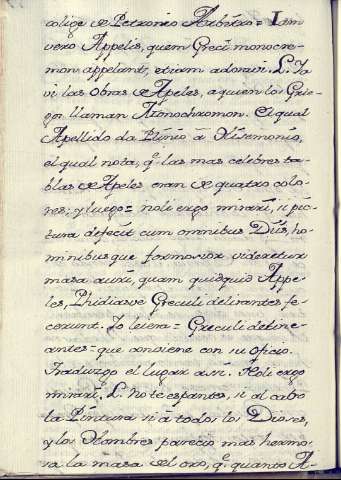 colige de Petronio Arbitro = Iam
vero Appelis, quem Greci monocre-
mon appelant, etiam adoravi. L. Ja
vi las Obras de Apeles, a quien los Grie-
gos llaman Monochromon. El qual
Apellido da Plinio à
el qual nota, q.e las mas celebres ta-
blas de Apeles eran de quatro colo-
res; y luego = noli ergo mirari, si pic-
tura defecit cum omnibus Diis, ho-
minibus que formosior videretur
masa auri, quam quidquid Appe-
les, Phidiasve Greculi delirantes fe-
cerunt. Yo leiera = Greculi deline-
antes = que conviene con su Oficio.
Traduzgo el lugar asi. Noli ergo
mirari. L. No te espantes, si al cabo
la Pintura si à todos los Dioses,
y los Hombres parecio mas hermo-
sa la masa del oro, q.e quanto A-